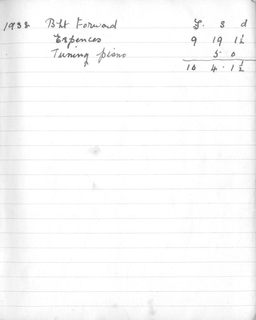 1938 Bht Forward £. s d
Expences 9 19 1½
Tuning piano 5 0
10 4 . 1½